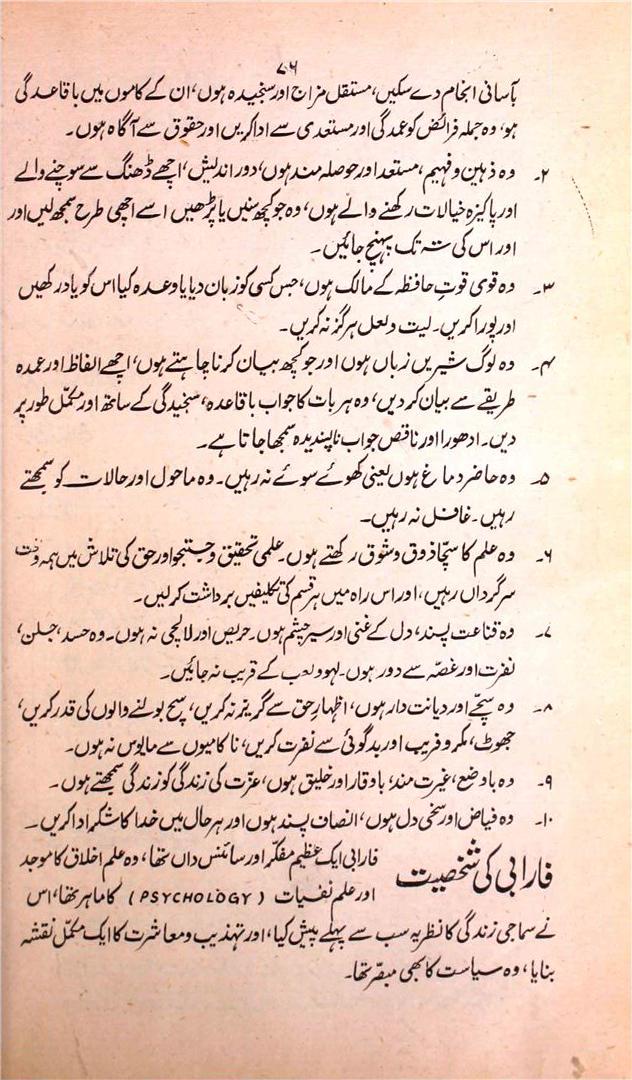 ۷۶
بآسانی انجام دے سکیں، مستقل مزاج اور سنجیدہ ہوں، ان کے کاموں میں باقاعدگی
ہو، وہ جملہ فرائض کو عمدگی اور مستعدی سے ادا کریں اور حقوق سے آگاہ ہوں۔
۲۔ وہ ذہین و فہیم، مستعد اور حوصلہ مند ہوں، دور اندیش، اچھے ڈھنگ سے سوچنے والے
اور پاکیزہ خیالات رکھنے والے ہوں، وہ جو کچھ سنیں یا پڑھیں اسے اچھی طرح سمجھ لیں اور
اور اس کی تہ تک پہنچ جائیں۔
۳۔ وہ قوی قوتِ حافظہ کے مالک ہوں، جس کسی کو زبان دیا یا وعدہ کیا اس کو یاد رکھیں
اور پورا کریں۔ لیت و لعل ہرگز نہ کریں۔
۴۔ وہ لوگ شیریں زباں ہوں اور جو کچھ بیان کرنا چاہتے ہوں، اچھے الفاظ اور عمدہ
طریقے سے بیان کر دیں، وہ ہر بات کا جواب باقاعدہ، سنجیدگی کے ساتھ اور مکمّل طور پر
دیں۔ ادھورا اور ناقص جواب ناپسندیدہ سمجھا جاتا ہے۔
۵۔ وہ حاضر دماغ ہوں یعنی کھوئے سوئے نہ رہیں۔ وہ ماحول اور حالات کو سمجھتے
رہیں۔ غافل نہ رہیں۔
۶۔ وہ علم کا سچّا ذوق و شوق رکھتے ہوں۔ علمی تحقیق و جستجو اور حق کی تلاش میں ہمہ وقت
سرگرداں رہیں، اور اس راہ میں ہر قسم کی تکلیفیں برداشت کر لیں۔
۷۔ وہ قناعت پسند، دل کے غنی اور سیر چشم ہوں۔ حریص اور لالچی نہ ہوں۔ وہ حسد، جلن،
نفرت اور غصّہ سے دور ہوں۔ لہو و لعب کے قریب نہ جائیں۔
۸۔ وہ سچّے اور دیانت دار ہوں، اظہارِ حق سے گریز نہ کریں، سچ بولنے والوں کی قدر کریں،
جھوٹ، مکر و فریب اور بدگوئی سے نفرت کریں، ناکامیوں سے مایوس نہ ہوں۔
۹۔ وہ باوضع، غیرت مند، باوقار اور خلیق ہوں، عزّت کی زندگی کو زندگی سمجھتے ہوں۔
۱۰۔ وہ فیاض اور سخی دل ہوں، انصاف پسند ہوں اور ہر حال میں خدا کا شکر ادا کریں۔
فارابی کی شخصیت
فارابی ایک عظیم مفکّر اور سائنس داں تھا، وہ علم اخلاق کا موجد
اور علم نفسیات (PSYCHOLOGY) کا ماہر تھا، اس
نے سماجی زندگی کا نظریہ سب سے پہلے پیش کیا، اور تہذیب و معاشرت کا ایک مکمّل نقشہ
بنایا، وہ سیاست کا بھی مبصّر تھا۔